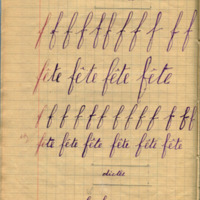 f f f f f f f f f f
fête fête fête fête
f f f f f f f f f f f f f
fête fête fête fête fête fête
dictée